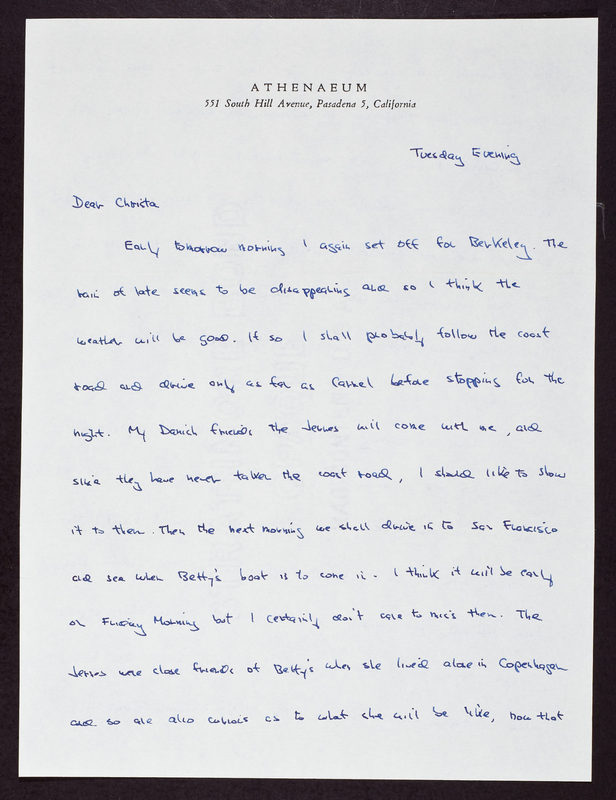 ATHENAEUM
551 South Hill Avenue, Pasadena 5, California
Tuesday Evening
Dear Christa
Early tomorrow morning I again set off for Berkeley. The
rain of late seems to be disappearing and so I think the
weather will be good. If so I shall probably follow the coast
road and drive only as far as Carmel before stopping for the
night. My Danish friends the Jennes will come with me, and
since they have never taken the coast road, I should like to show
it to them. Then the next morning we shall drive in to San Francisco
and see when Betty's boat is to come in. I think it will be early
on Friday Morning but I certainly don't care to miss them. The
Jennes were close friends of Betty's when she lived alone in Copenhagen
and so are also curious as to what she will be like, now that